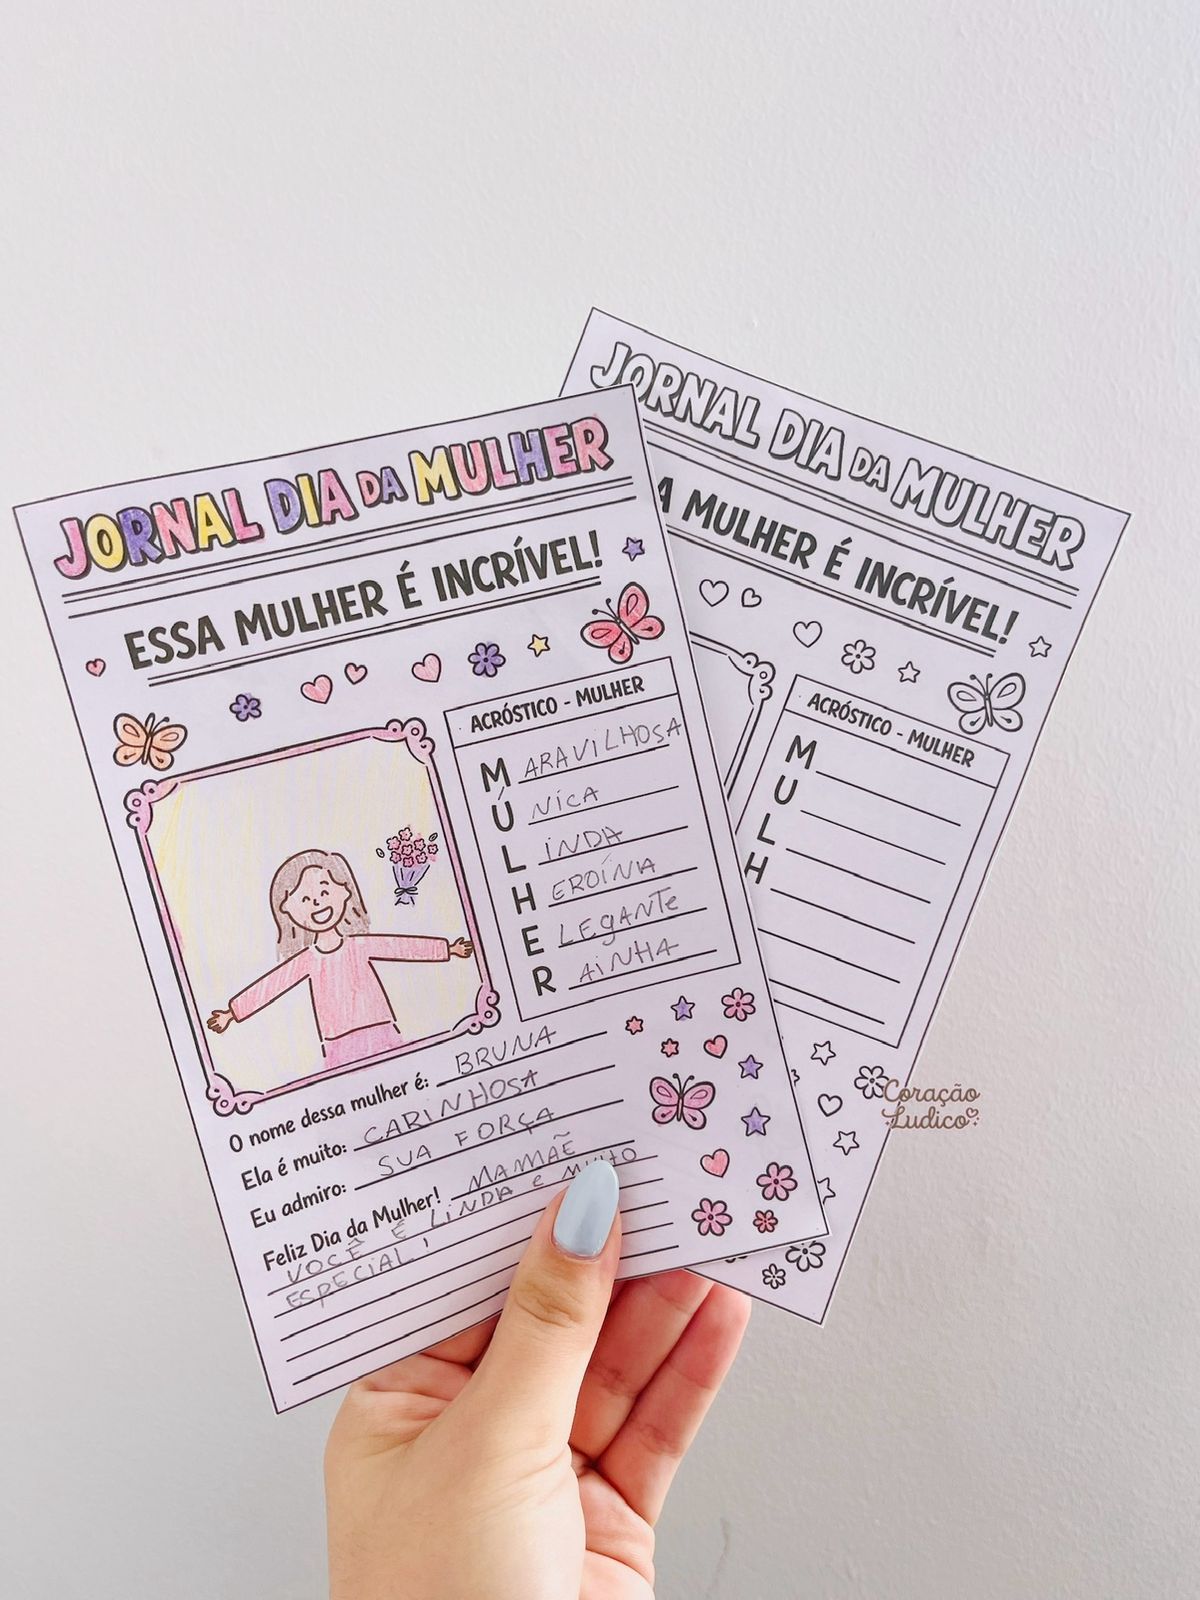 JORNAL DIA DA MULHER
ESSA MULHER É INCRÍVEL!
ACRÓSTICO - MULHER
MARAVILHOSA
ÚNICA
LINDA
HEROÍNA
ELEGANTE
RAINHA
O nome dessa mulher é: BRUNA
Ela é muito: CARINHOSA
Eu admiro: SUA FORÇA
Feliz Dia da Mulher! MAMÃE
VOCÊ É LINDA e MUITO
ESPECIAL!
JORNAL DIA DA MULHER
A MULHER É INCRÍVEL!
ACRÓSTICO - MULHER
M
U
L
H
Coração
Ludico